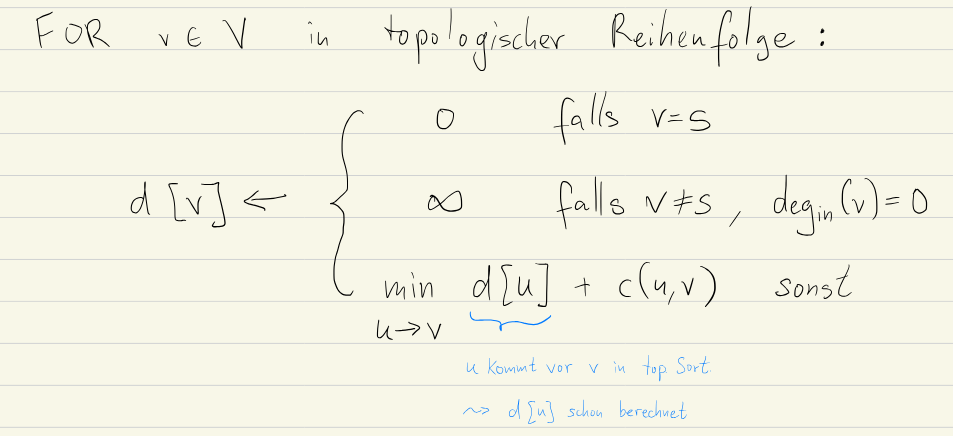 FOR v ∈ V in topologischer Reihenfolge:
0 falls v=s
d[v] ← { ∞ falls v≠s, deg_in(v)=0
min d[u] + c(u,v) sonst
u→v
u kommt vor v in top. Sort.
⇝ d[u] schon berechnet